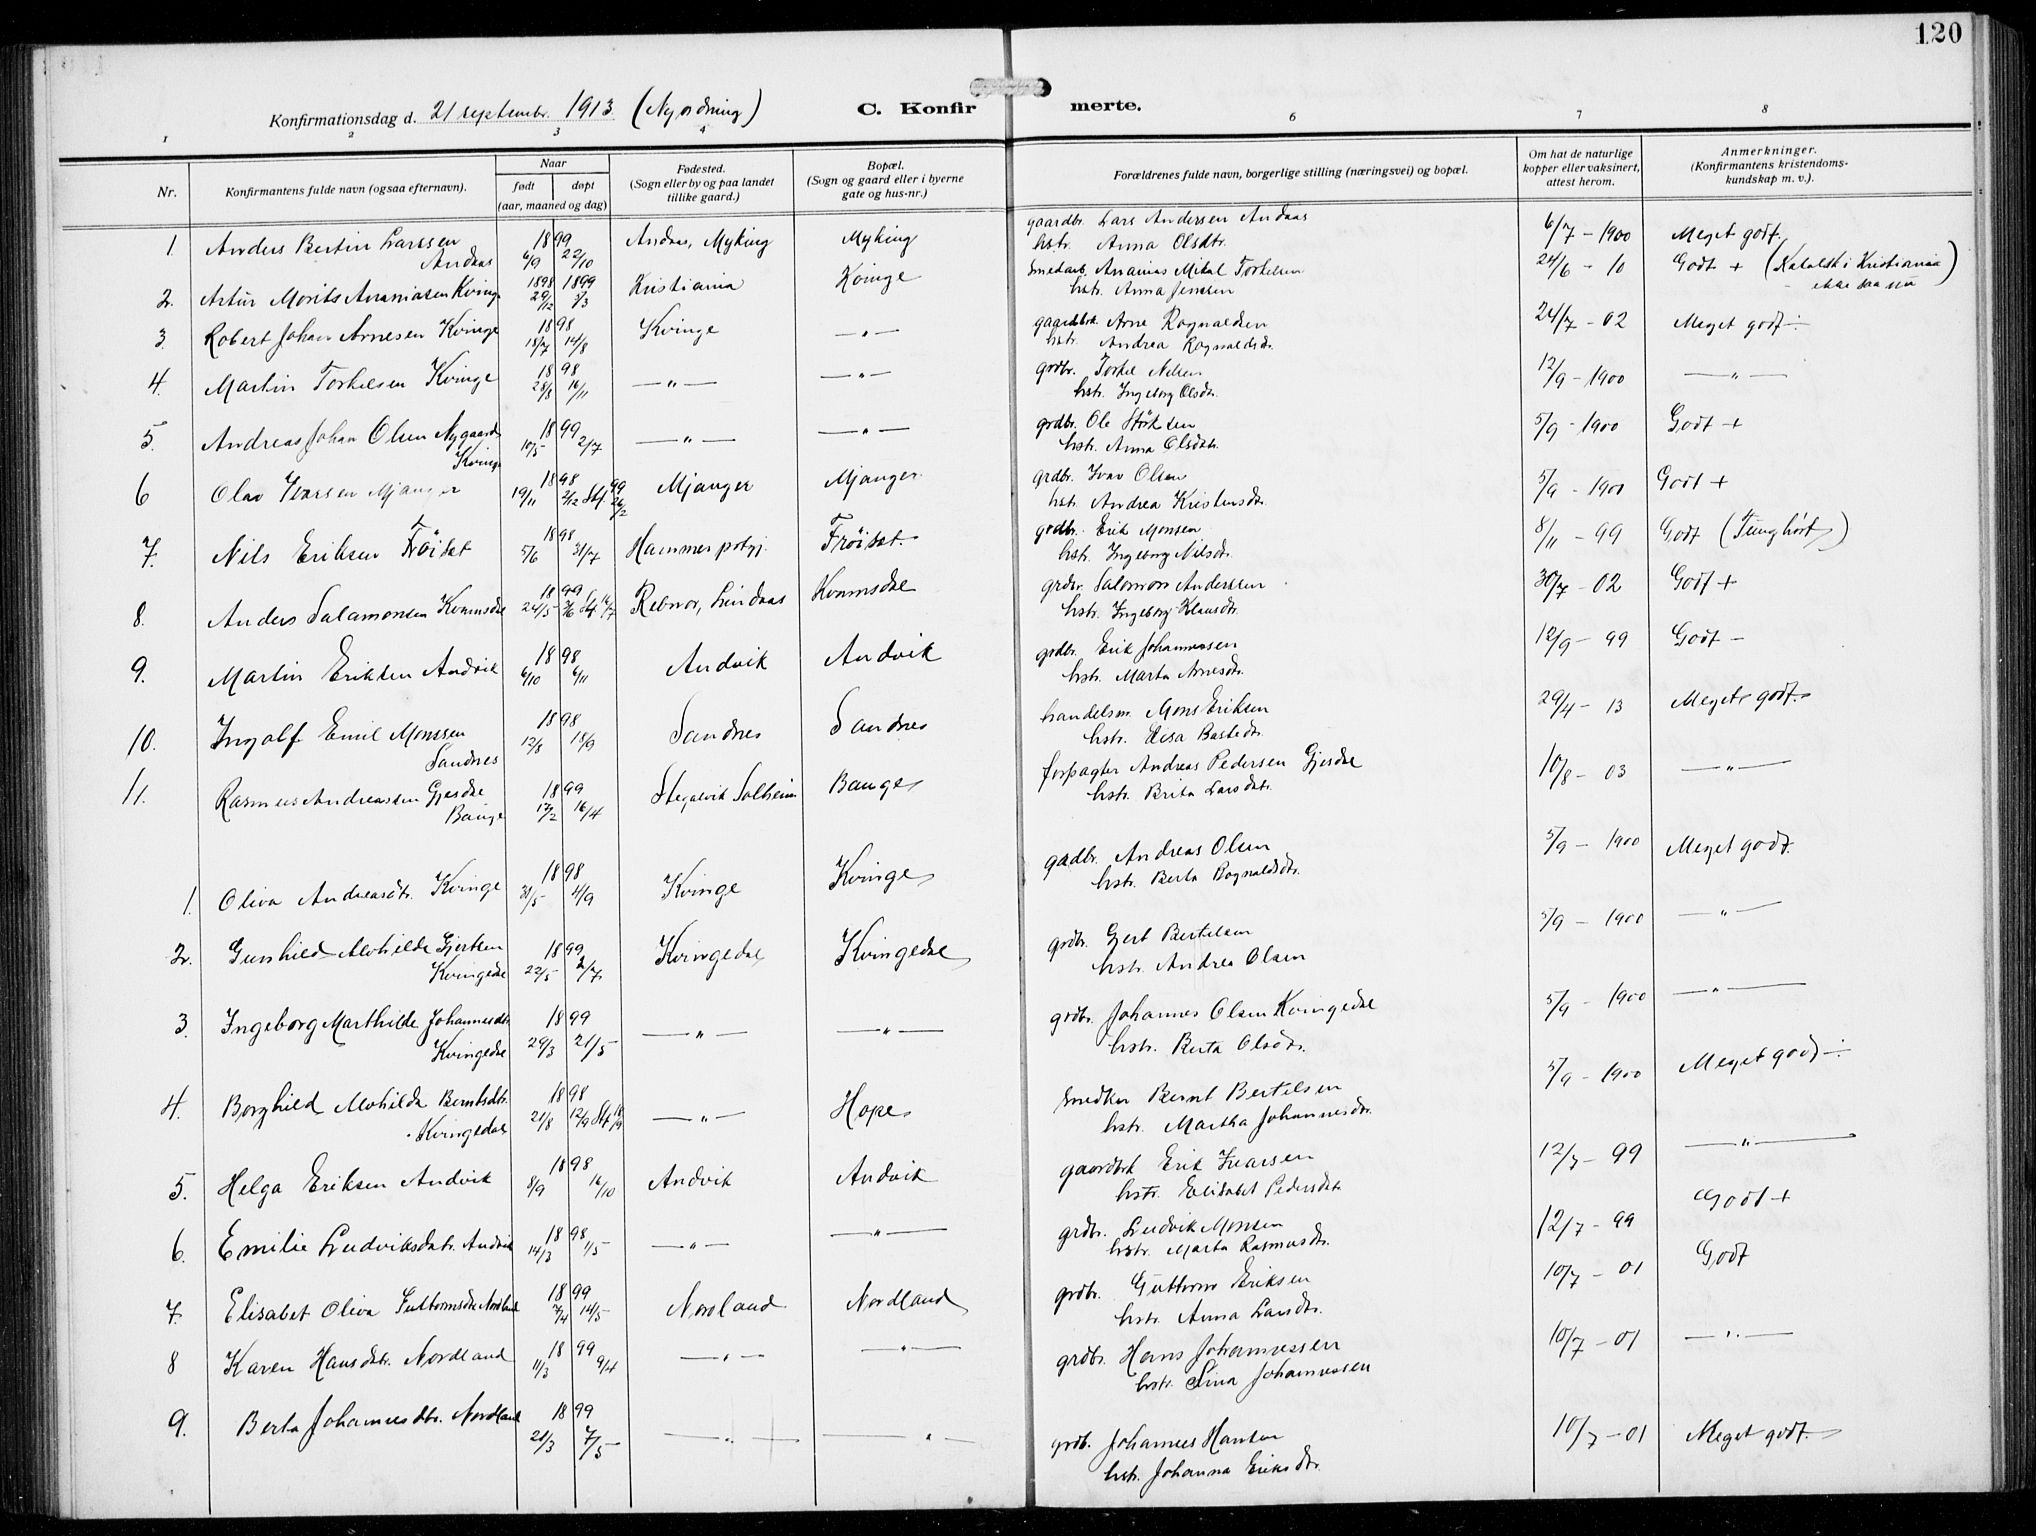 120
Konfirmationsdag d. 21 septembr. 1913 (Nyordning)
C. Konfirmerte.
1 2 3 4 6 7 8
Nr.
Konfirmantens fulde navn (ogsaa efternavn).
Naar
født døpt
(aar, maaned og dag)
Fødested.
(Sogn eller by og paa landet
tillike gaard.)
Bopæl.
(Sogn og gaard eller i byerne
gate og hus-nr.)
Forældrenes fulde navn, borgerlige stilling (næringsvei) og bopæl.
Om hat de naturlige
kopper eller vaksinert,
attest herom.
Anmerkninger.
(Konfirmantens kristendoms-
kundskap m. v.).
1. Anders Bertin Larssen Andaas 1899 6/9 22/10 Andaas, Myking Myking gaardbr. Lars Andersen Andaas hstr. Anna Olsdtr. 6/7 - 1900 Meget godt
2. Artur Morits Ananiasen Kvinge 1898 29/12 1899 /3 Kristiania Kvinge smedarb. Ananias Mikal Torkelsen hstr. Anna Jenssen 24/6 - 10 Godt + (Katolsk i Kristiania)
3. Robert Johan Arnesen Kvinge 1898 18/7 14/8 Kvinge —"— gaardbrk. Arne Rognaldsen hstr. Andrea Rognaldsdr. 24/7 - 02 Meget godt ÷
4. Martin Torkelsen Kvinge 1898 28/8 16/11 —"— —"— grdbr. Torkel Nilsen hstr. Ingeborg Olsdtr. 12/9 - 1900 —"—
5. Andreas Johan Olsen Nygaard Kvinge 1899 10/5 2/7 —"— —"— grdbr. Ole hstr. Anna Olsdtr. 5/9 - 1900 Godt +
6 Olav Ivarsen Mjanger 1898 19/11 2/12 Stf. 99 26/2 Mjanger Mjanger grdbr. Ivar Olsen hstr. Andrea Kristensdr. 5/9 - 1900 Godt +
7. Nils Eriksen Fröiset 1898 5/6 31/7 Hammer prstgj. Fröiset grdbr. Erik Monsen hstr. Ingeborg Nilsdr. 8/11 - 99 Godt (Tunghört)
8. Anders Salamonsen Kvamsdal 1899 24/5 Stf. 16/7 Rebnor, Lindaas Kvamsdal grdbr. Salomon Anderssen hstr. Ingeborg Klausdtr. 30/7 - 02 Godt +
9. Martin Eriksen Andvik 1898 6/10 6/11 Andvik Andvik grdbr. Erik Johannessen hstr. Marta Arnesdr. 12/9 - 99 Godt -
10. Ingolf Emil Monssen Sandnes 1898 12/8 18/9 Sandnes Sandnes handelsm. Mons Eriksen hstr. Elisa Bastedr. 29/4 - 13 Meget godt
11. Rasmus Andreassen Gjesdal Bauge 1899 17/2 16/4 Stegalvik Solheim Bauge forpagter Andreas Pedersen Gjesdal hstr. Brita Larsdtr. 10/8 - 03 —"—
1. Oliva Andreasdtr. Kvinge 1898 31/5 4/9 Kvinge Kvinge gardbr. Andreas Olsen hstr. Berta Rognaldsdtr. 5/9 - 1900 Meget godt.
2. Gunhild Alvhilde Gjertsen Kvingedal 1899 22/5 2/7 Kvingedal Kvingedal grdbr. Gjert Bertelsen hstr. Andrea Olsen 5/9 - 1900 —"—
3. Ingeborg Marthilde Johannesdtr. Kvingedal 1899 29/3 21/5 —"— —"— grdbr. Johannes Olsen Kvingedal hstr. Berta Olsdtr. 5/9 - 1900 —"—
4. Borghild Alvhilda Berntsdtr. Kvingedal 1898 21/8 12/9 Stf. 18/9 —"— Hope Bernt Bertelsen hstr. Martha Johannesdtr. 5/9 - 1900 Meget godt ÷
5. Helga Eriksen Andvik 1898 8/9 16/10 Andvik Andvik gaardbrk Erik Ivarsen hstr. Elisabet Pedersdtr. 12/7 - 99 —"—
6. Emilie Ludviksdatr. Andvik 1898 14/3 1/5 —"— —"— grdbr. Ludvik Monsen hstr. Marta Rasmusdtr. 12/7 - 99 Godt +
7. Elisabet Oliva Guttormsdtr Nordland 1899 7/4 14/5 Nordland Nordland grdbr. Guttorm Eriksen hstr. Anna Larsdtr. 10/7 - 01 Godt
8 Karen Hansdtr. Nordland 1899 11/3 9/4 —"— —"— grdbr. Hans Johannessen hstr. Sina Johannessen 10/7 - 01 —"—
9. Berta Johannesdtr. Nordland 1899 21/3 7/5 —"— —"— grdb. Johannes Hansen hstr. Johanna Eriksdtr. 10/7 - 01 Meget godt.